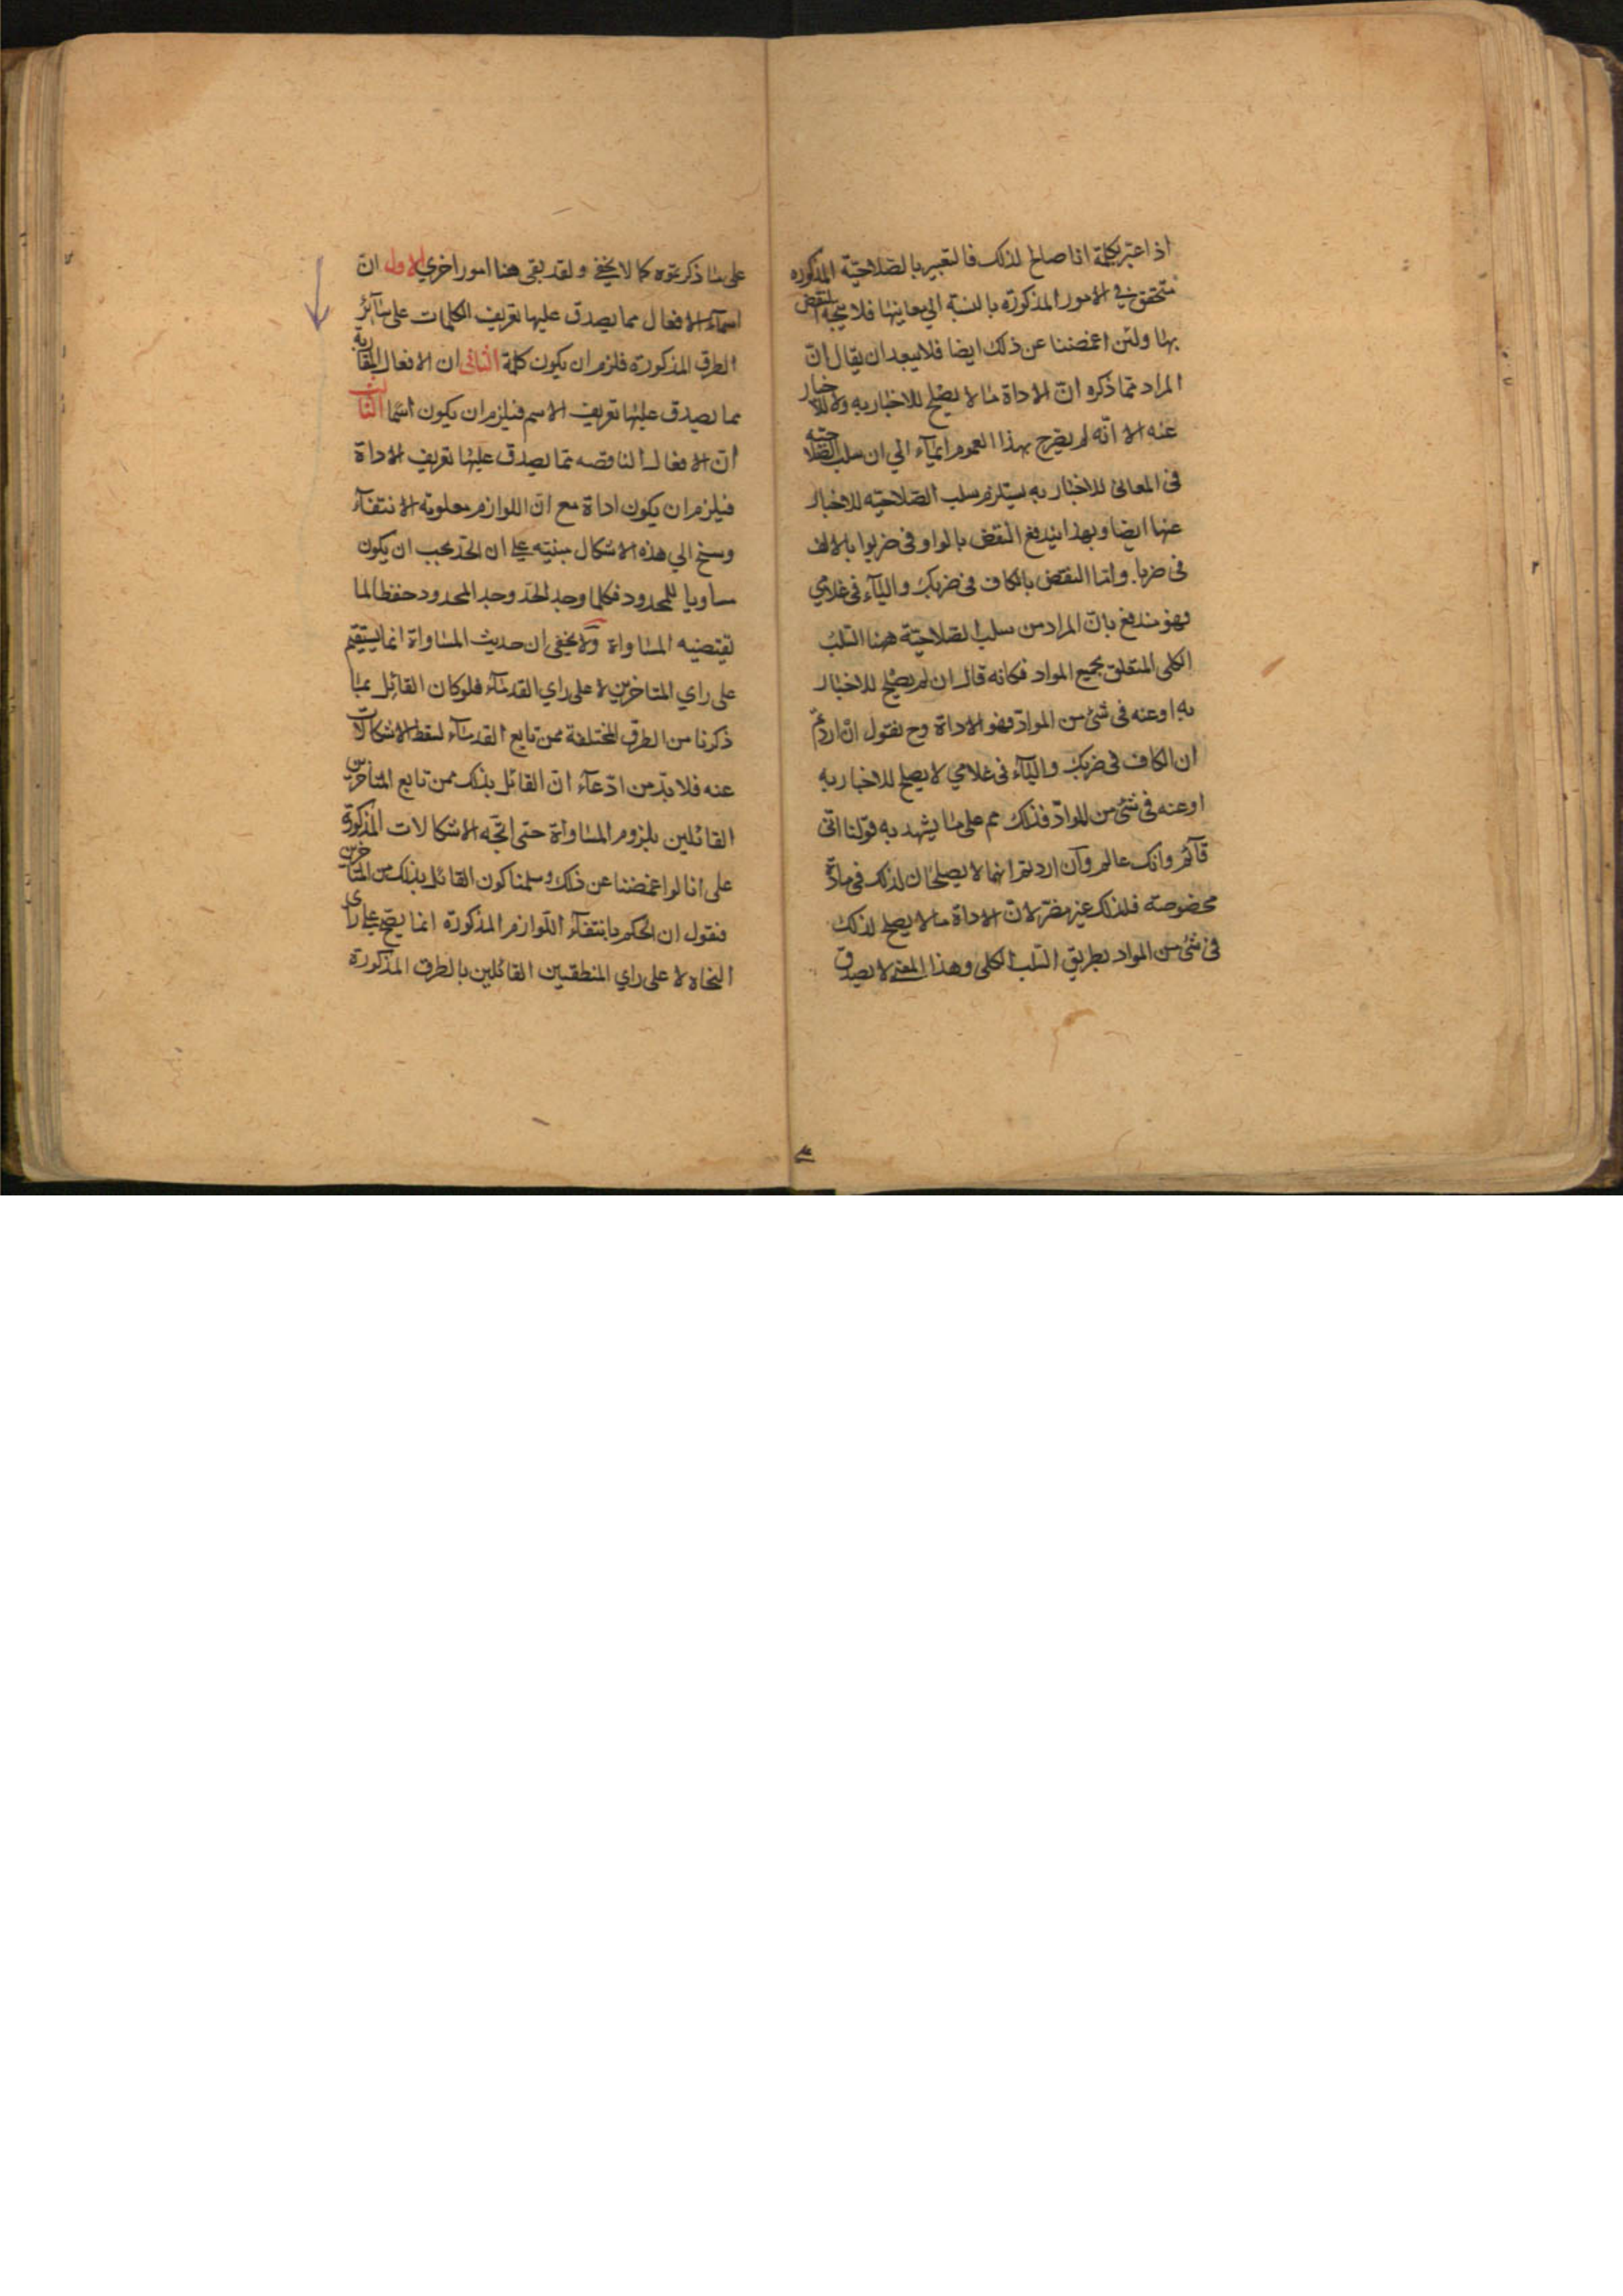 اذا عبّر بكلمة انا صالح لذلك فالتعبير بالصّلاحيّة المذكوره
متحقق في الامور المذكورة بالنسبة الي معانيها فلا يتجه النقض
بها ولئن اغمضنا عن ذلك ايضا فلا يبعد ان يقال انّ
المراد مما ذكره انّ الاداة ما لا يصلح للاخبار به ولا للاخبار
عنه الا انّه لم يصرح بهذا العموم ايمآء الي ان سلب الصلاحيّه
في المعاني للاخبار به يستلزم سلب الصّلاحيّه للاخبار
عنها ايضا وبهذا يندفع النقض بالواو في ضربوا بالالف
في ضربا وامّا النقض بالكاف في ضربك واليآء في غلامي
فهو مندفع بانّ المراد من سلب الصّلاحيّة ههنا السّلب
الكلي المتعلق بجميع المواد فكانه قال ان لم يصلح للاخبار
به او عنه في شئ من الموادّ فهو الاداة وح نقول ان اردتم
ان الكاف في ضربك واليآء في غلامي لا يصلح للاخبار به
او عنه في شئ من الموادّ فذلك مم على ما يشهد به قولنا انّي
قآئم وانك عالم وآن اردتم انهما لا يصلحان لذلك في مادّة
مخصوصة فلذلك غير مضرّ لانّ الاداة ما لا يصلح لذلك
في شئ من المواد بطريق السّلب الكلي وهذا المعنى لا يصدق
على ما ذكرتموه كما لا يخفي ولقد بقي هنا امور اخري الاول انّ
اسمآء الافعال مما يصدق عليها تعريف الكلمات على سآئر
الطرق المذكورة فلزم ان يكون كلمة الثاني ان الافعال المقاربة
مما يصدق عليها تعريف الاسم فيلزم ان يكون اسما الثالث
انّ الافعال الناقصه مما يصدق عليها تعريف الاداة
فيلزم ان يكون اداة مع انّ اللوازم معلومة الانتفآء
وسنح الي هذه الاشكال مبنيّه علي ان الحدّ يجب ان يكون
مساويا للمحدود فكلما وجد الحدّ وجد المحدود حفظا لما
تقتضيه المساواة ولا يخفى ان حديث المساواة انما يستقيم
على راي المتاخرين لا على راي القدمآء فلو كان القائل بما
ذكرنا من الطرق المختلفة ممن تابع القدمآء لسقط الاشكالات
عنه فلا بدّ من ادّعآء انّ القائل بذلك ممن تابع المتأخرين
القائلين بلزوم المساواة حتى اتّجه الاشكالات المذكورة
على انا لو اغمضنا عن ذلك وسلمنا كون القائل بذلك من المتأخرين
فنقول ان الحكم بانتفآء اللّوازم المذكورة انما يصحّ علي رأي
النحاه لا على راي المنطقيين القائلين بالطرق المذكورة